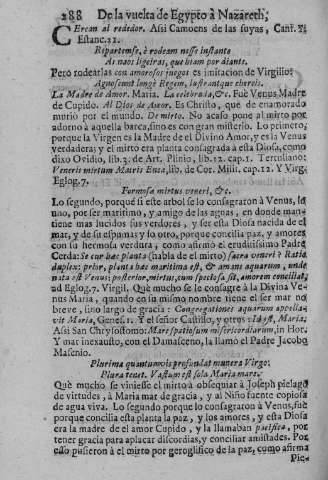 288 De la vuelta de Egypto à Nazareth;
Cercan al rededor. Assi Camoens de las suyas, Cant.
Estanc. 21.
Ripartemse, è rodeam nesse instante
As naos ligeiras, que hiam por diante.
Pero rodearlas con amorosos juegos es imitacion de Virgilio:
Agnoscunt longè Regem, lustrantque choreis.
La Madre de Amor. Maria. La celebrada, &c. Fue Venus Madre
de Cupido. Al Dios de Amor. Es Christo, que de enamorado
murió por el mundo. De mirto. No acaso pone al mirto por
adorno à aquella barca, sino es con gran misterio. Lo primero,
porque la Virgen es la Madre de el Divino Amor, y es la Venus
verdadera; y el mirto era planta consagrada à esta Diosa, como
dixo Ovidio, lib. 3. de Art. Plinio, lib. 12. cap. 1. Tertoliano:
Veneris mirtum Matris Eneæ, lib. de Cor. Milit. cap. 12. Y Virg.
Eglog. 7.
Formosa mirtus veneri, &c.
Lo segundo, porque si este arbol se lo consagraron à Venus, lo
uno, por ser maritimo, y amigo de las agnas, en donde mantiene
mas lucidos sus verdores, y ser esta Diosa nacida de el
mar, y de su espumas y lo otro, porque concilia paz, y amores
con su hermosa verdura; como afirmò el eruditissimo Padre
Cerda: Se cur hæc planta (habla de el mirto) sacra veneri? Ratio
duplex: prior, planta hæc maritima est, & amans aquarum, unde
nata est Venus; posterior, mirtus, cum speciosa sit, amorem conciliat,
ad Eglog. 7. Virgil. Què mucho se le consagre à la Divina Venus
Maria, quando en su mismo nombre tiene el ser mar no
breve, sino largo de gracia: Congregationes aquarum appellavit
Maria, Genes. 1. Y el señor Castillo, y otros: id est, Maria;
Assi San Chrysostomo: Mare spatiosum misericordiarum, in Hor.
Y mar inexausto, con el Damasceno, la llamò el Padre Jacobo
Masenio.
Plurima quantumvis profundat munera Virgo:
Plura tenet. Vastum est sola Maria mare.
Què mucho se viniesse el mirto à obsequiar à Joseph pielago
de virtudes, à Maria mar de gracia, y al Niño fuente copiosa
de agua viva. Lo segundo porque lo consagraron à Venus, fue
porque concilia esta planta la paz, y los amores, y esta Diosa
era la madre de el amor Cupido, y la llamaban pacifica, por
tener gracia para aplacar discordias, y conciliar amistades. Por
esso pusieron al mirto por geroglifico de la paz, como afirma
Pie-